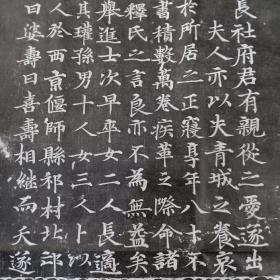 長社府君有親從之愛遂出
夫人亦以失青城之養哀
於所居之正寢享年八十不
書積數萬卷疾革之際命諸
釋氏之言良亦不為無益矣
舉進士次早卒女二人長適
其孫男十人女三人卜以
人於西京偃師縣祁村北邙
曰婆壽曰喜壽相繼而夭遂